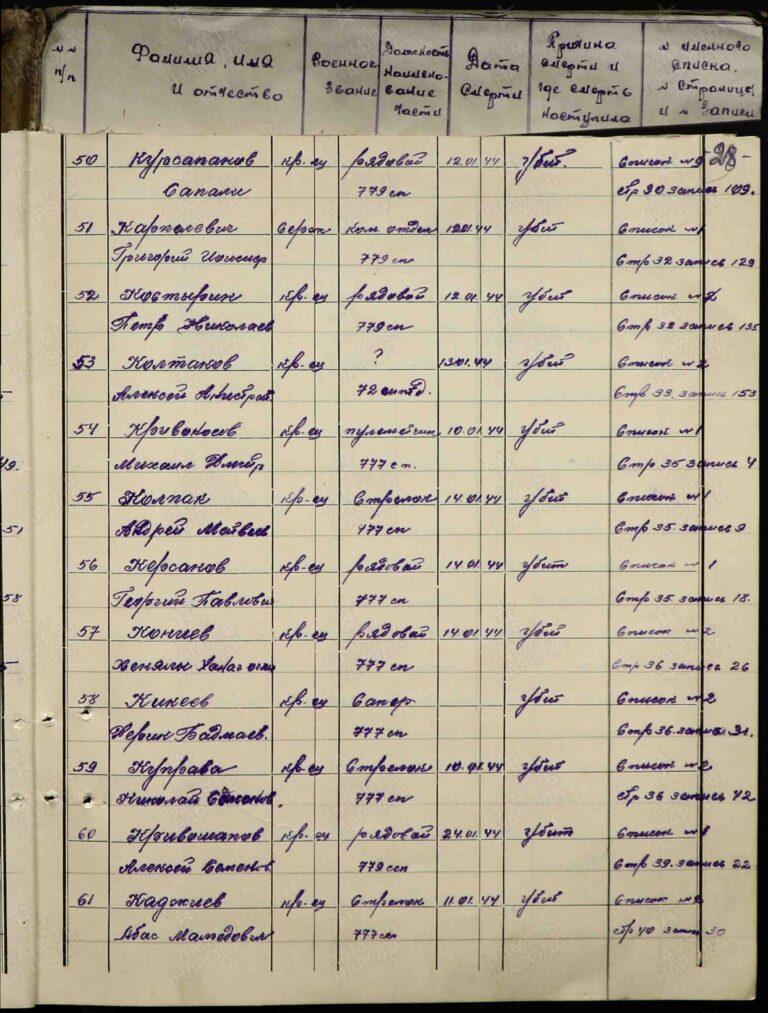 № № п/п Фамилия, имя и отчество Военное звание Должность наимено-вание части Дата смерти Причина смерти и где смерть наступила № именного списка, № страницы и № записи
-28-
50 Курсапаков кр-ец рядовой 12.01.44 убит. Список №9
Сапали 779 сп стр 30 запись 109.
51 Карполевич Сержн ком. отдел 12.01.44 убит Список №1
Григорий 779 сп Стр 32 запись 129
52 Костырин кр-ец рядовой 12.01.44 убит Список №2
Петр Николаев 779 сп Стр 32 запись 135
53 Колтаков кр-ец ? 13.01.44 убит Список №2
Алексей 72 Стр 33. запись 153
54 Кривоносов кр-ец пулеметчик 10.01.44 убит Список №1
Михаил Дмитр 777 сп. Стр 35 запись 4
55 Колпак кр-ец Стрелок 14.01.44 убит Список №1
Андрей Матвеев 777 сп Стр 35. запись 9
56 Керсанов кр-ец рядовой 14.01.44 убит Список №1
Георгий Павлович 777 сп Стр 35. запись 18.
57 Кониев кр-ец рядовой 14.01.44 убит Список №2
777 сп Стр 36 запись 26
58 Кикеев кр-ец Сапер убит Список №2
Бадмаев. 777 сп Стр 36. запись 31.
59 Куправа кр-ец Стрелок 10.01.44 убит Список №2
Николай Семонов. 777 сп стр 36 запись 42
60 Кривошапов кр-ец рядовой 24.01.44 убит Список №1
Алексей Семенов 779 ссп Стр 39. запись 22
61 Каджиев кр-ец Стрелок 11.01.44 убит Список №2
Абас Мамедович 777 сп стр 40 запис 30
49.
51
58